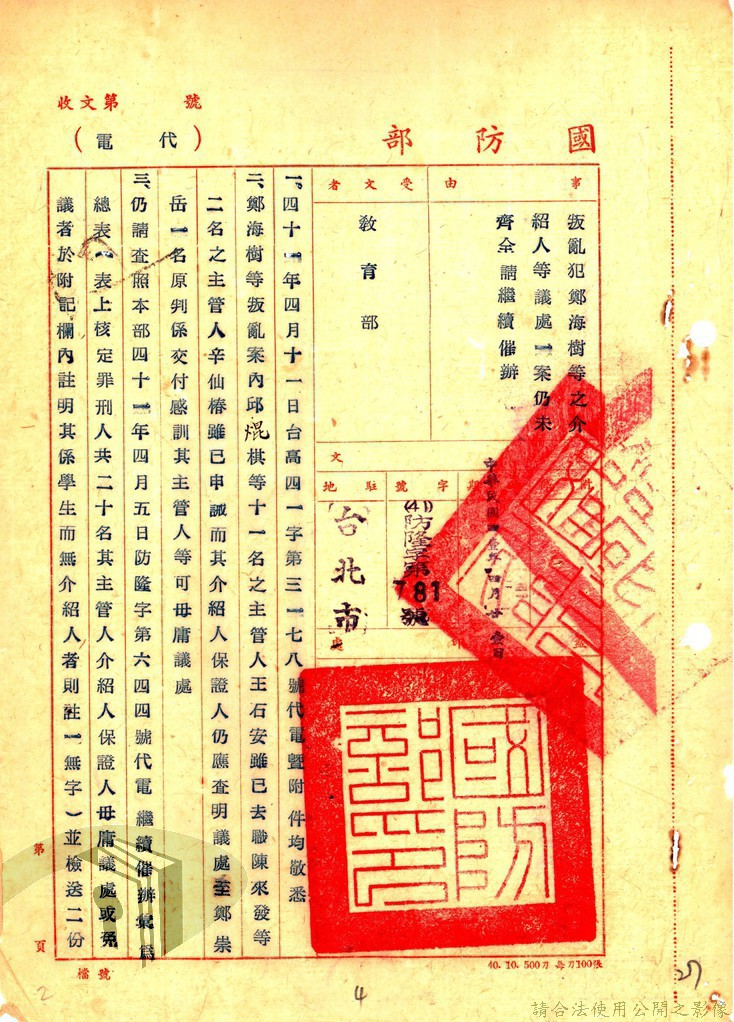 收文第　號
國防部（代電）
事由
叛亂犯鄭海樹等之介
紹人等議處一案仍未
齊全請繼續催辦
受文者
教育部
文
中華民國四十壹年四月　日
字號
(41)防隆字第781號
駐地
台北市
一、四十一年四月十一日台高四一字第三一七八號代電暨附件均敬悉
二、鄭海樹等叛亂案內邱焜棋等十一名之主管人王石安雖已去職陳來發等
二名之主管人辛仙椿雖已申誡而其介紹人保證人仍應查明議處至鄭崇
岳一名原判係交付感訓其主管人等可毋庸議處
三、仍請查照本部四十一年四月五日防隆字第六四四號代電繼續催辦彙為
總表一表上核定罪刑人共二十名其主管人介紹人保證人毋庸議處或免
議者於附記欄內註明其係學生而無介紹人者則註一無字）並檢送二份
第　頁
檔號
國防部印
40. 10. 500刀 每刀100張
2
4
27
請合法使用公開之影像